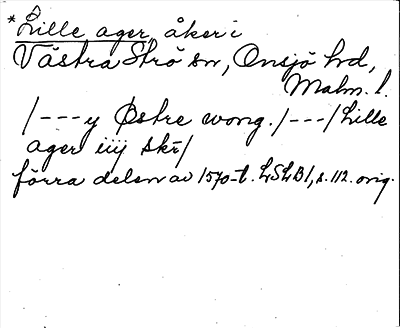 *Lille ager, åker i
Västra Strö sn, Onsjö hd,
Malm. l.
/---y Østre wong./---/Lille
ager iiij skr/
förra delen av 1570-t. LSLB1, s. 112. orig.